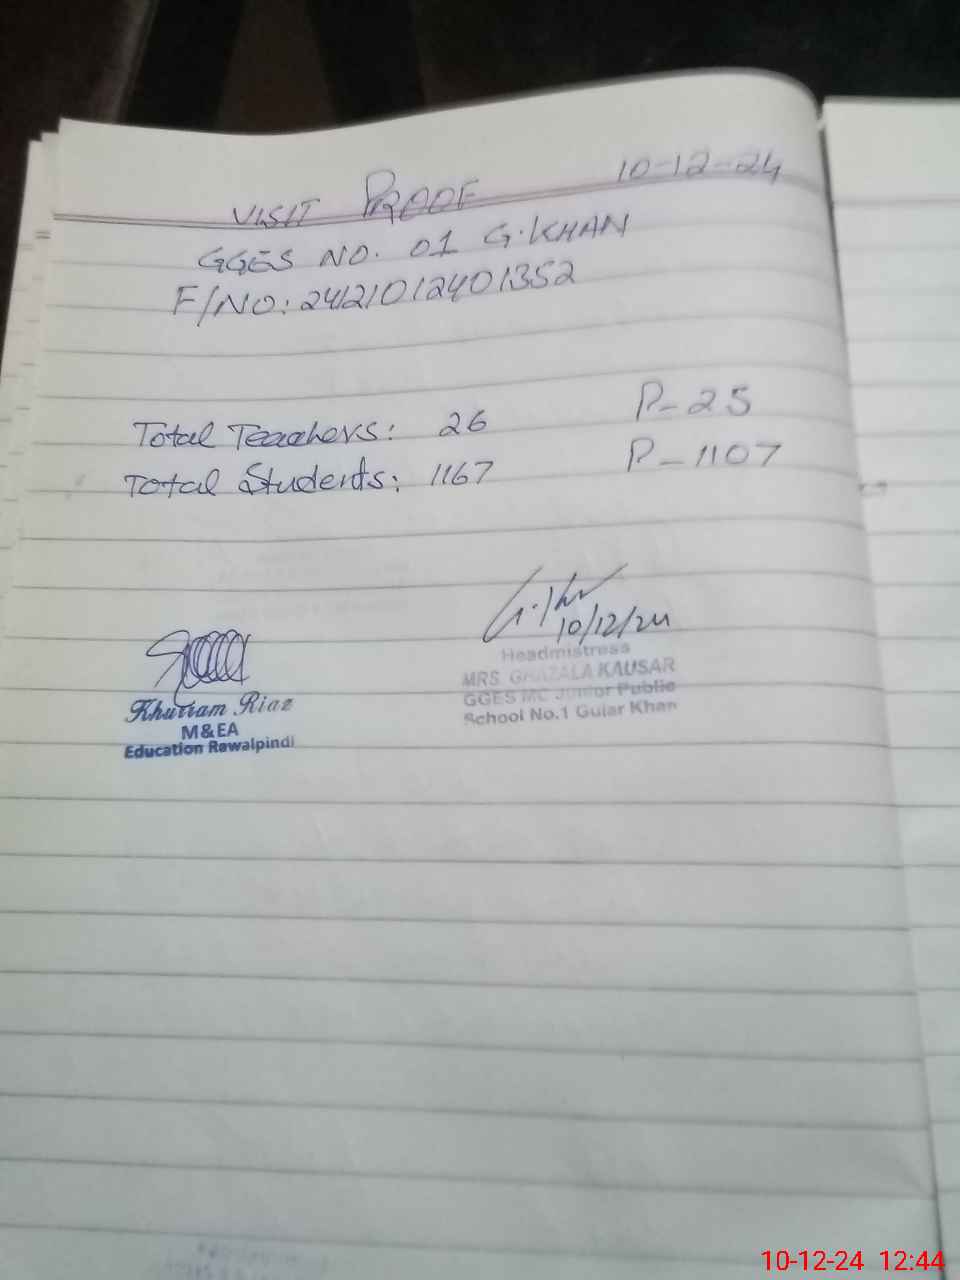 VISIT PROOF 10-12-24
GGES NO. 01 G.KHAN
F/NO: 2421012401352
Total Teachers: 26 P-25
Total Students: 1167 P-1107
10/12/24
Headmistress
MRS. GHAZALA KAUSAR
GGES MC Junior Public
School No.1 Gujar Khan
Khurram Riaz
M&EA
Education Rawalpindi
10-12-24 12:44